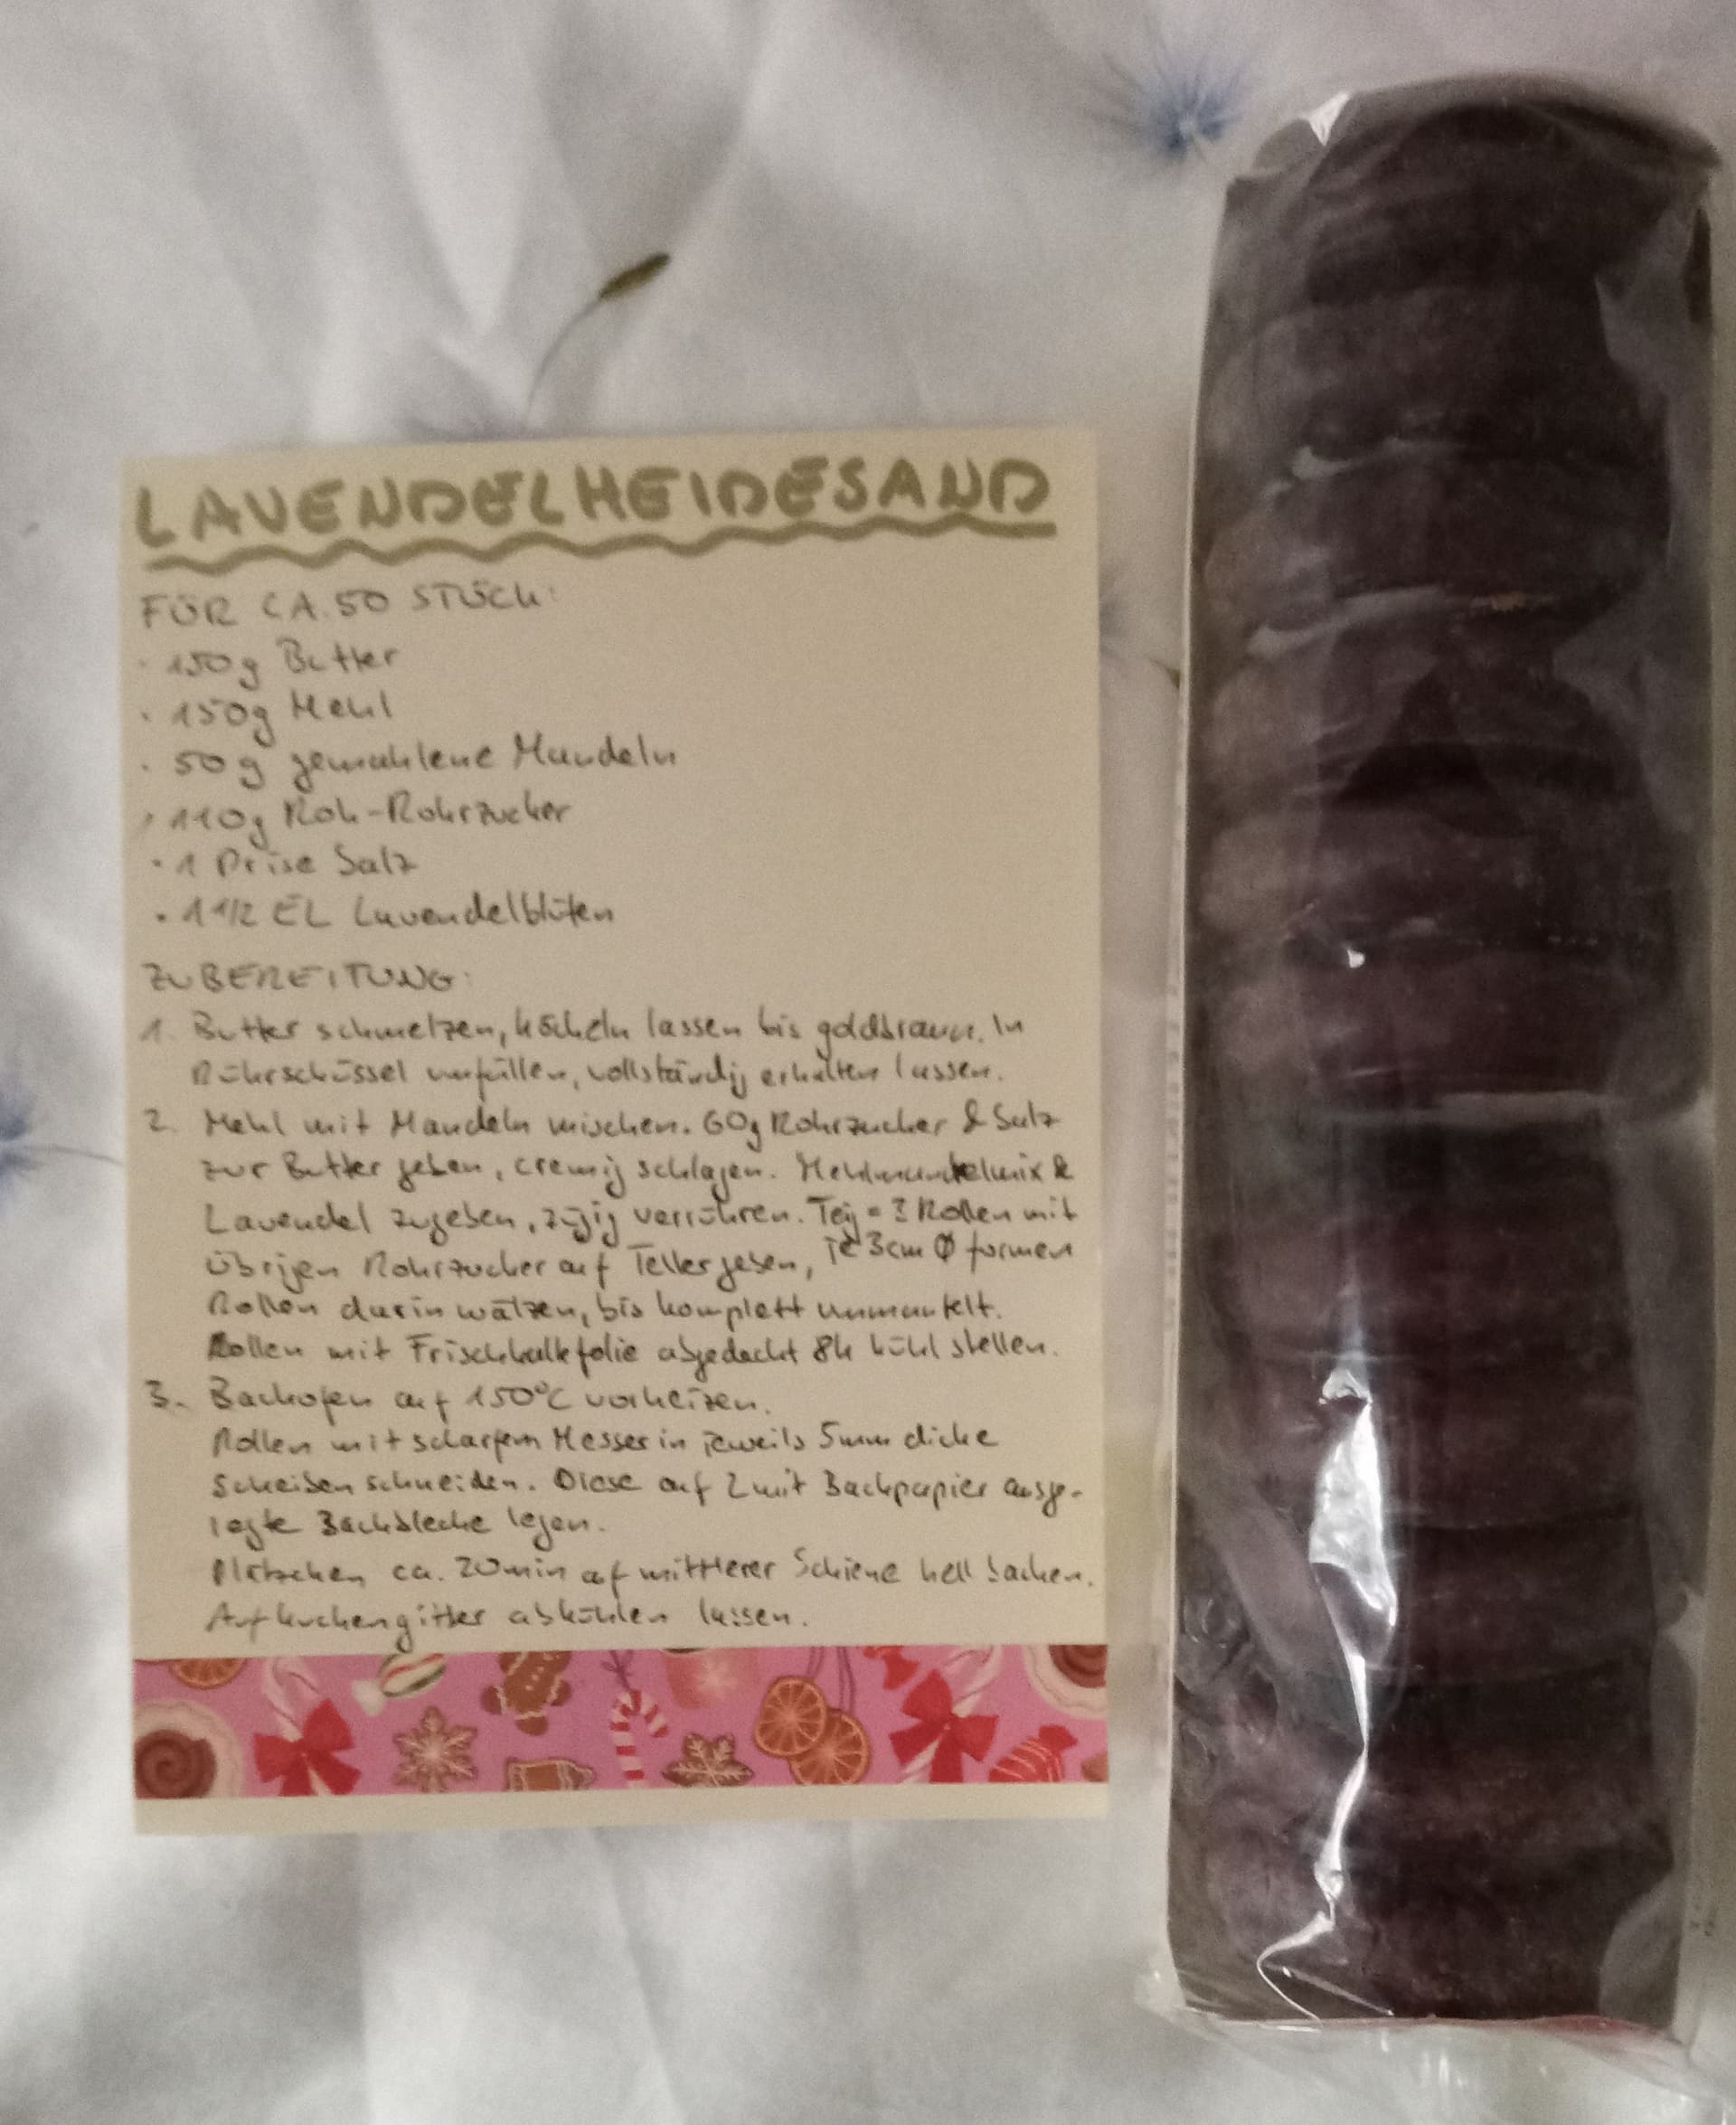 LAVENDELHEIDESAND
FÜR CA. 50 STÜCK:
· 150g Butter
· 150g Mehl
· 50g gemahlene Mandeln
· 110g Roh-Rohrzucker
· 1 Prise Salz
· 1 1/2 EL Lavendelblüten
ZUBEREITUNG:
1. Butter schmelzen, köcheln lassen bis goldbraun. In
Rührschüssel umfüllen, vollständig erkalten lassen.
2. Mehl mit Mandeln mischen. 60g Rohrzucker & Salz
zur Butter geben, cremig schlagen. Mehlmandelmix &
Lavendel zugeben, zügig verrühren. Teig = 3 Rollen mit
je 3cm Ø formen
übrigen Rohrzucker auf Teller geben,
Rollen darin wälzen, bis komplett ummantelt.
Rollen mit Frischhaltefolie abgedeckt 8h kühl stellen.
3. Backofen auf 150°C vorheizen.
Rollen mit scharfem Messer in jeweils 5mm dicke
Scheiben schneiden. Diese auf 2 mit Backpapier ausge-
legte Backbleche legen.
Plätzchen ca. 20min auf mittlerer Schiene hell backen.
Auf Kuchengitter abkühlen lassen.